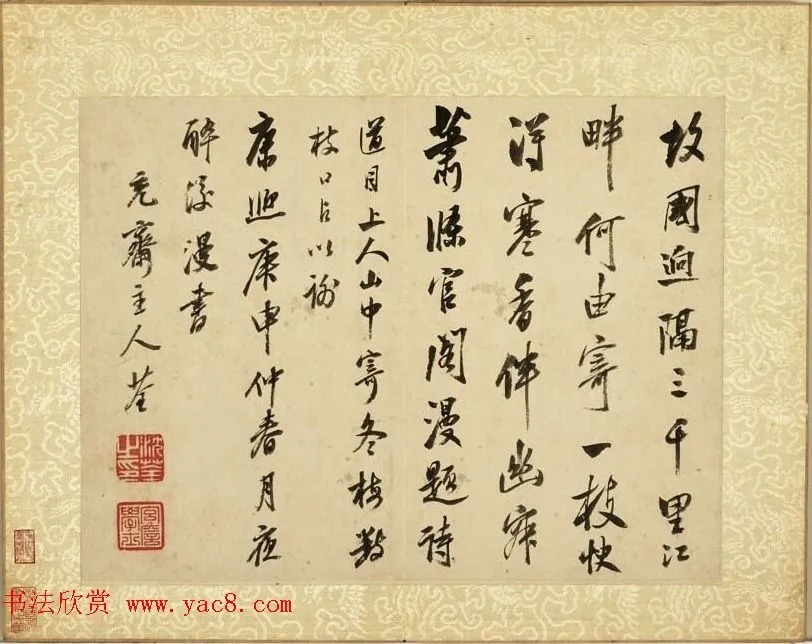 故國迥隔三千里江
畔何由寄一枝快
得寒香伴幽寂
蕭條官閣漫題詩
道目上人山中寄冬梅數
枝口占以謝
康熙庚申仲春月夜
醉後漫書
充齋主人荃
沈荃之印
宮詹學士
书法欣赏 www.yac8.com